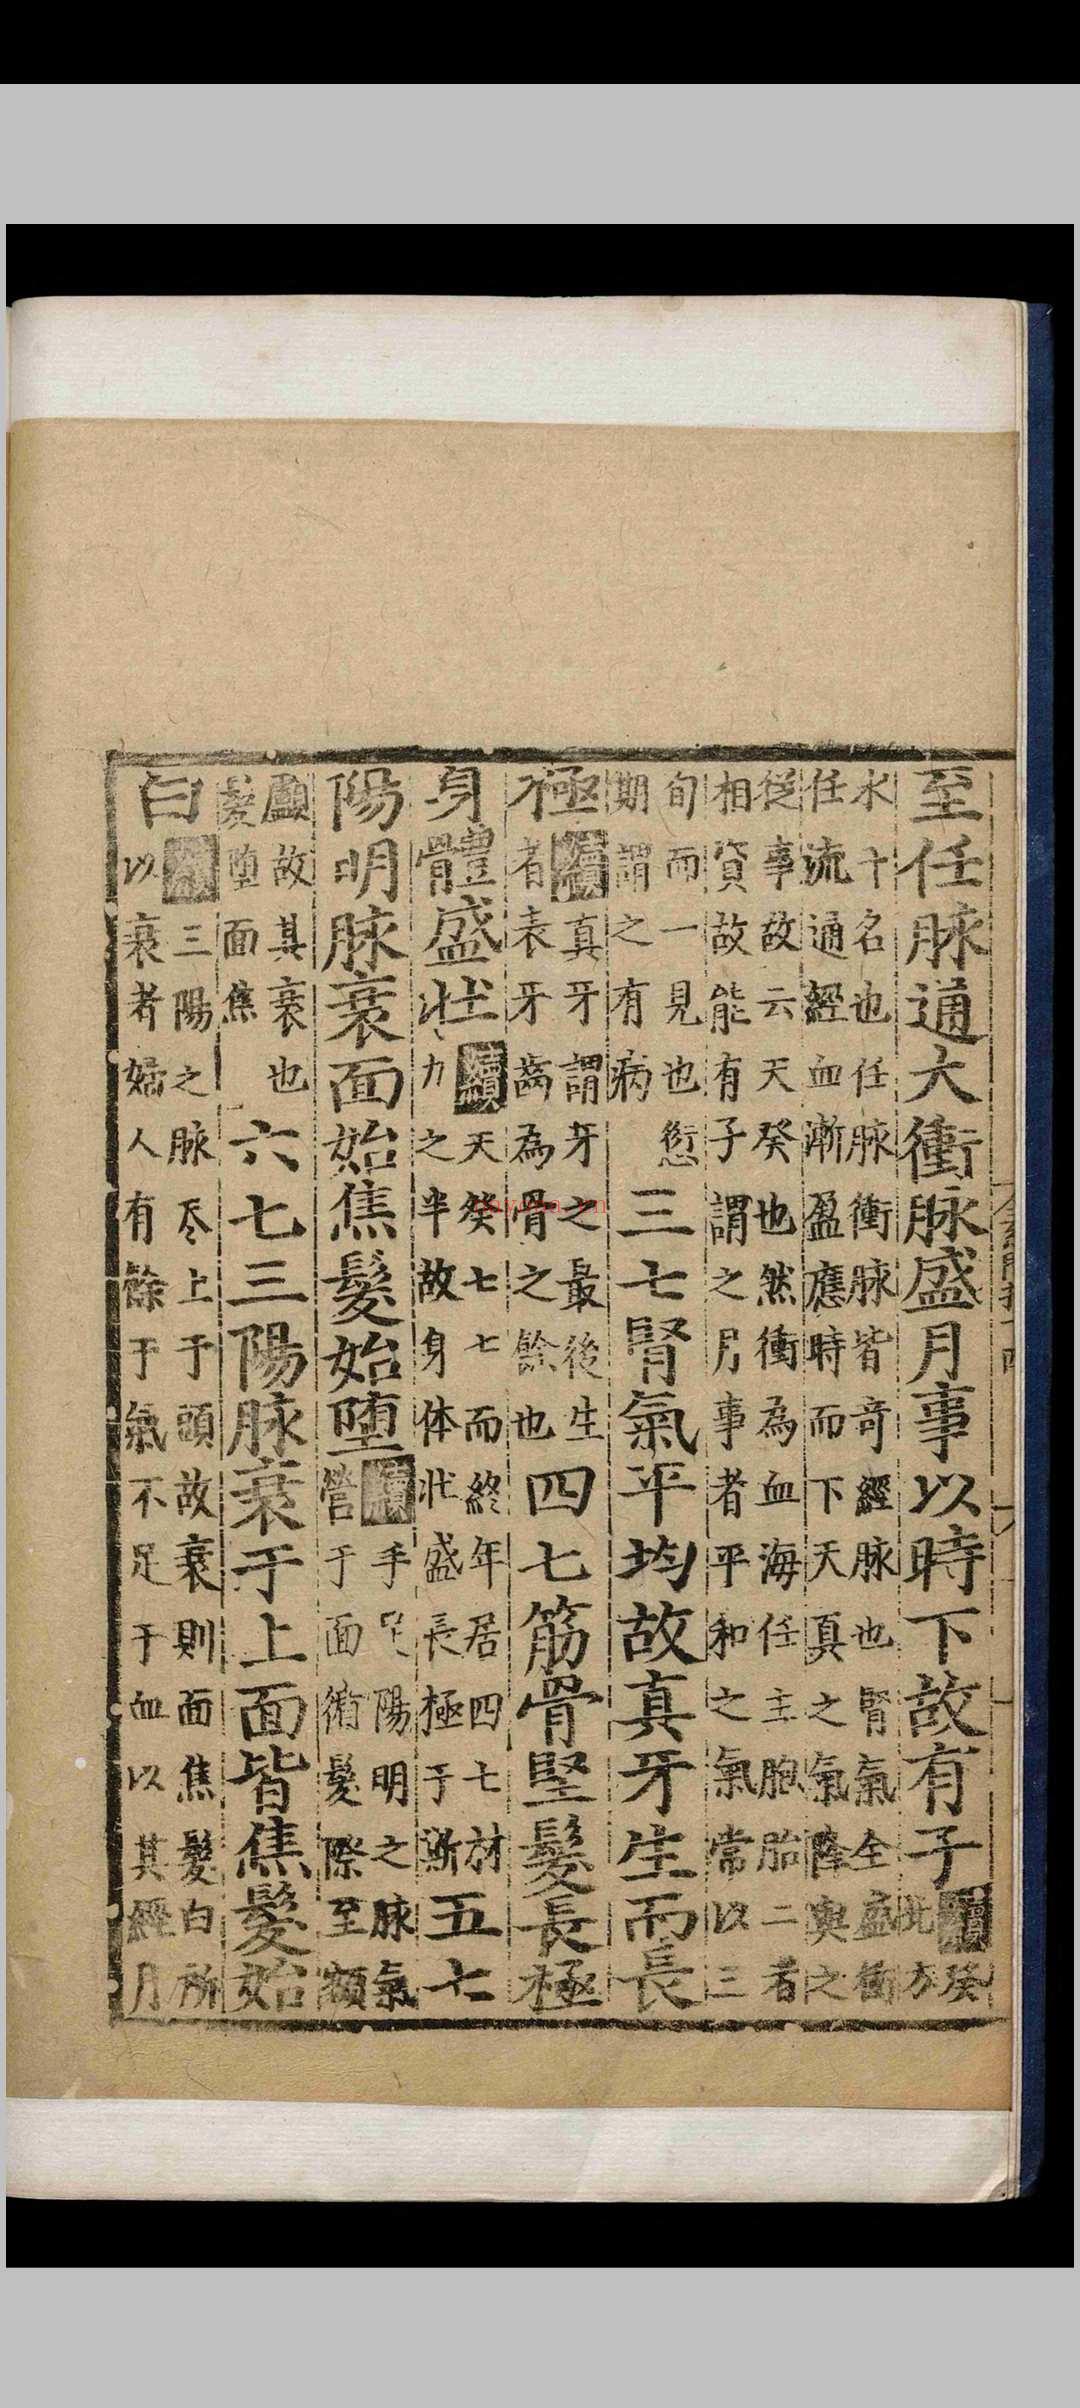 至任脉通大衝脉盛月事以時下故有子續癸北方
水十名也任脉衝脉皆竒經脉也腎氣全盛衝
任流通經血漸盈應時而下天真之氣降與之
從事故云天癸也然衝為血海任主胞胎二者
相資故能有子謂之月事者平和之氣常以三
旬而一見也愆
期謂之有病
三七腎氣平均故真牙生而長
極續真牙謂牙之最後生
者表牙齒為骨之餘也
四七筋骨堅髮長極
身體盛壯續天癸七七而終年居四七材
力之半故身体壯盛長極于漸
五七
陽明脉衰面始焦髮始墮續手足陽明之脉氣
營于面循髮際至額
顱故其衰也
髮墮面焦
六七三陽脉衰于上面皆焦髮始
白續三陽之脉尽上于頭故衰則面焦髮白所
以衰者婦人有餘于氣不足于血以其經月